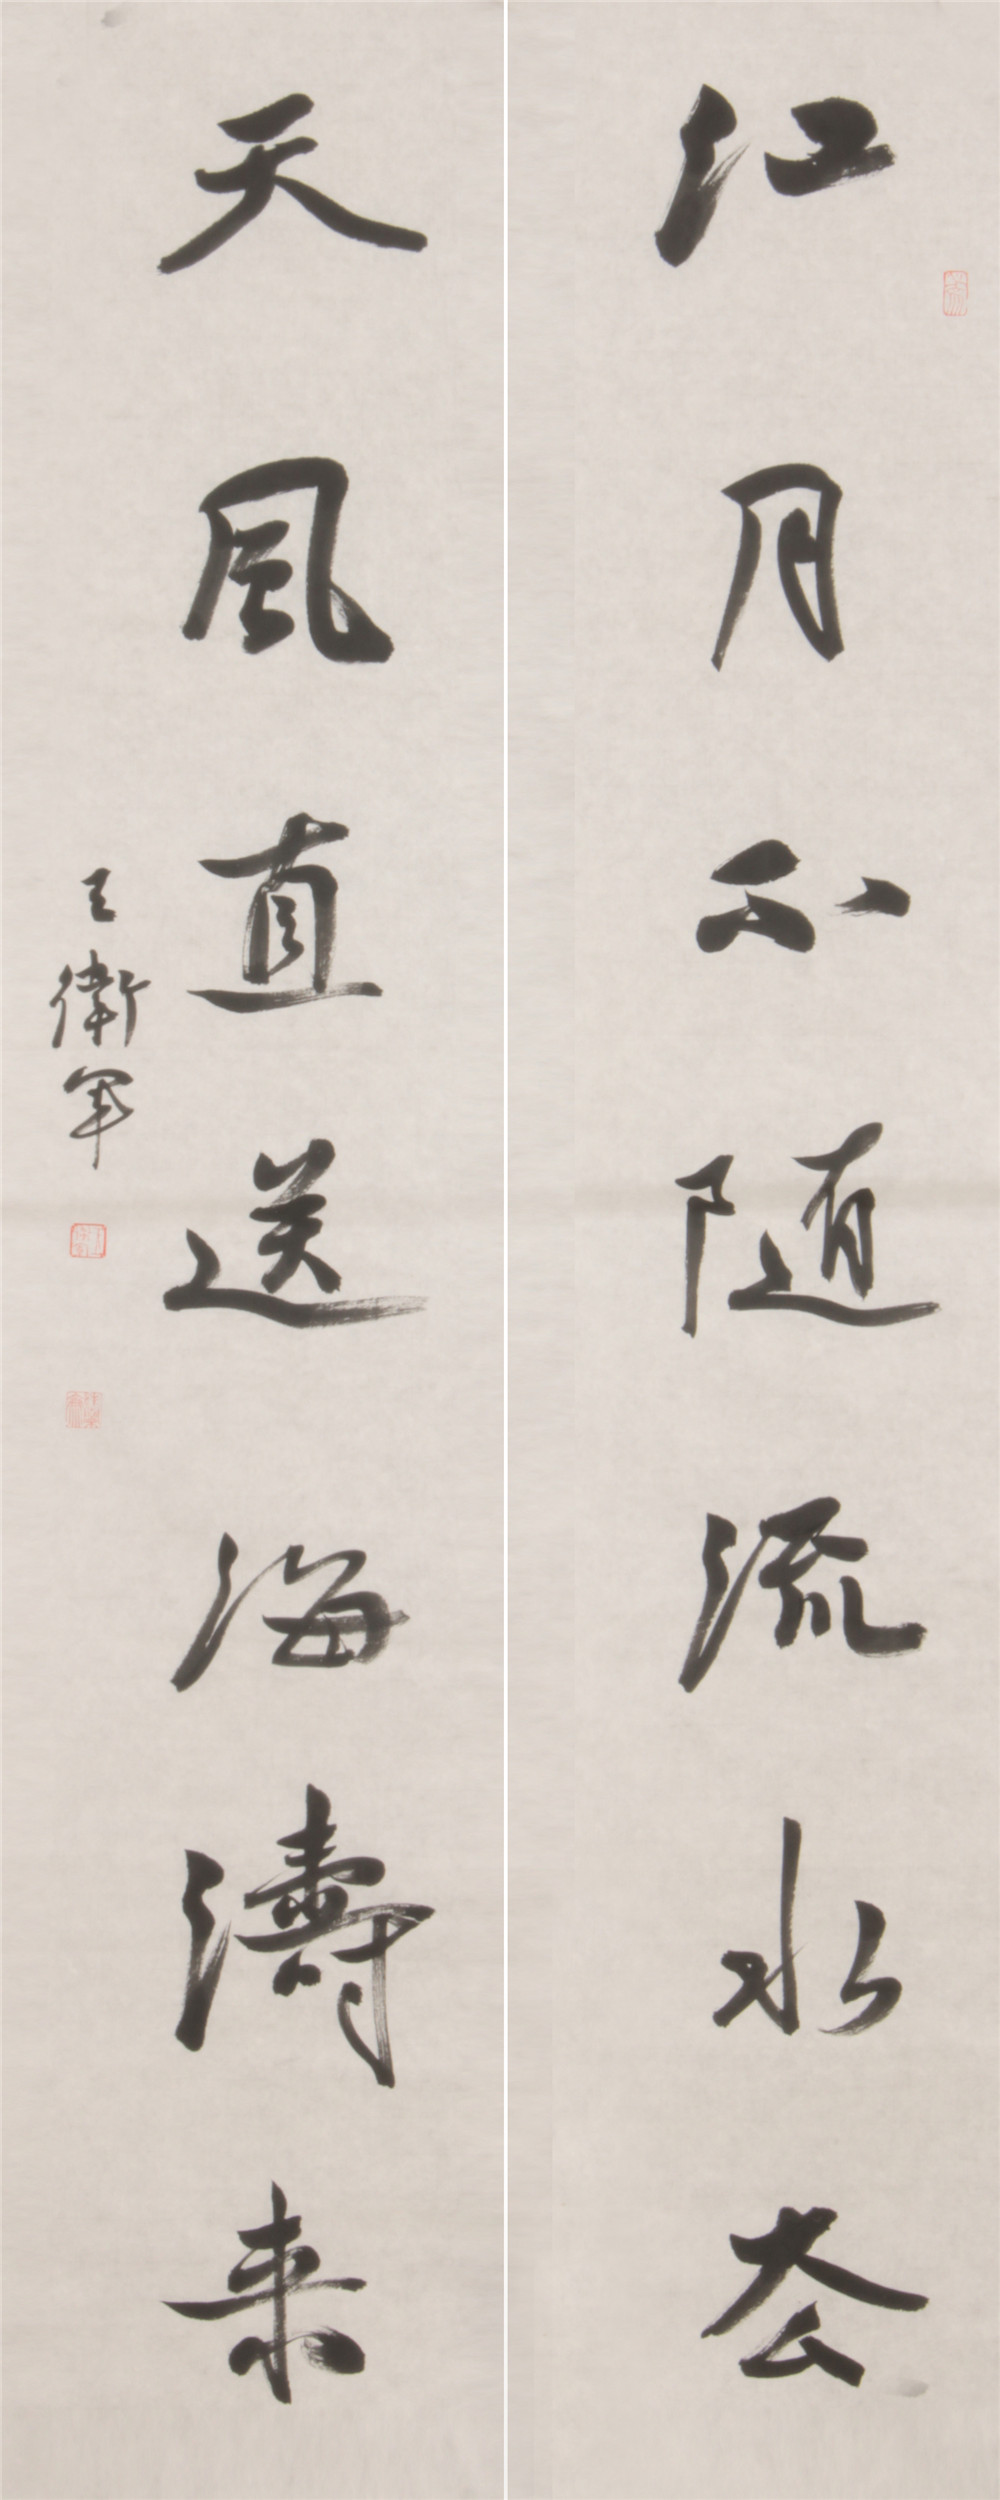 江月不随流水去
天風直送海濤来
王衛軍